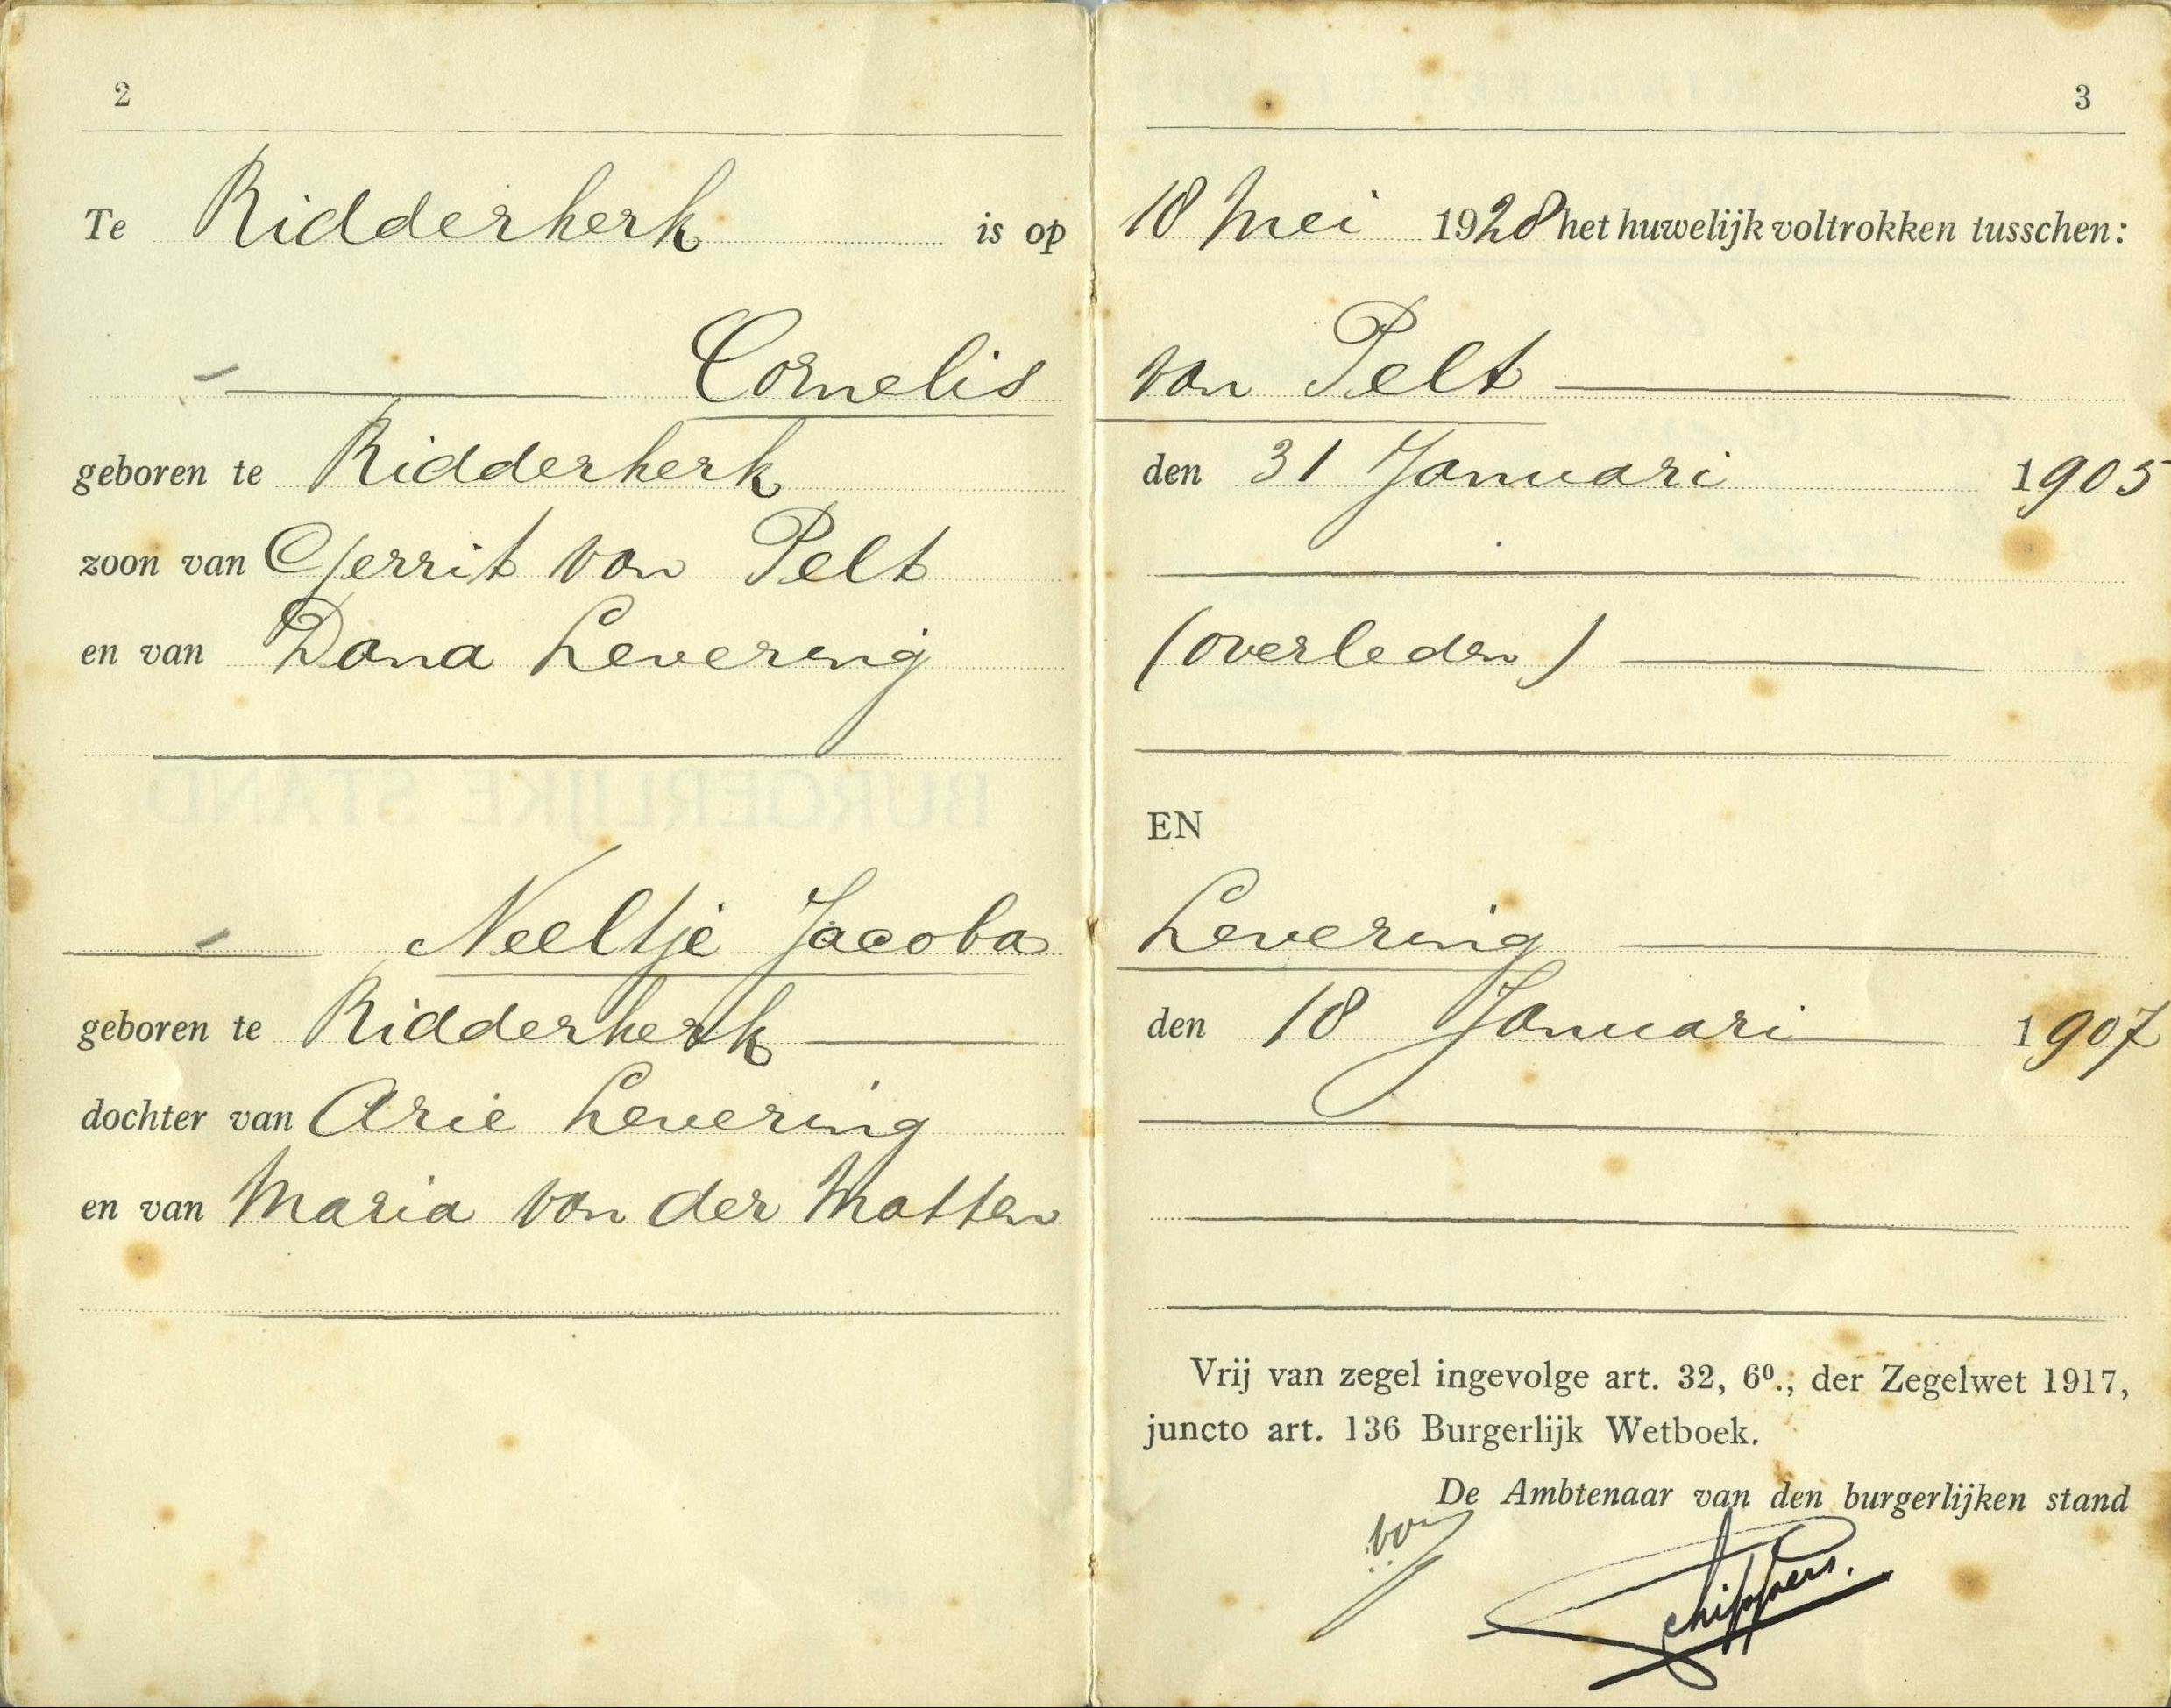 2
3
Te Ridderkerk is op 18 Mei 1928 het huwelijk voltrokken tusschen:
Cornelis van Pelt
geboren te Ridderkerk den 31 Januari 1905
zoon van Gerrit van Pelt
en van Dana Levering (overleden)
EN
Neeltje Jacoba Levering
geboren te Ridderkerk den 18 Januari 1907
dochter van Arie Levering
en van Maria van der Matten
Vrij van zegel ingevolge art. 32, 6⁰., der Zegelwet 1917,
juncto art. 136 Burgerlijk Wetboek.
De Ambtenaar van den burgerlijken stand
Schippers.
BURGERLIJKE STAND